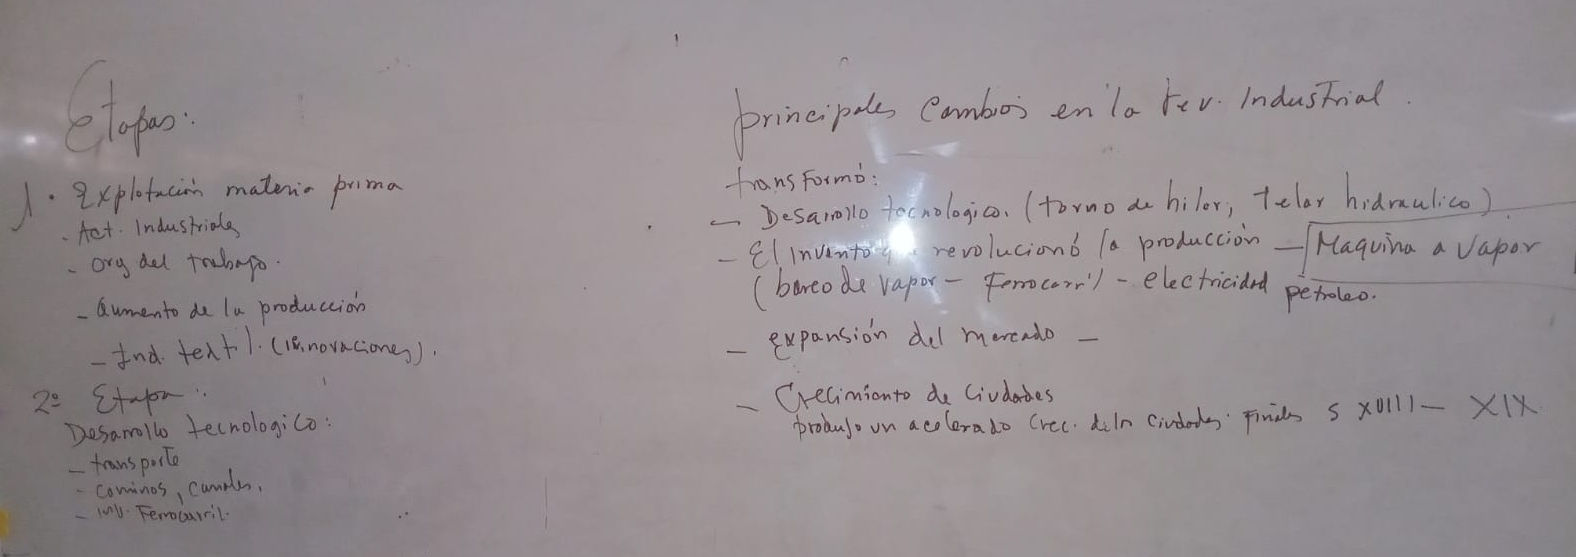 Etapas:
1. Explotación materia prima
- Act. Industriales
- org del trabajo.
- aumento de la producción
- Ind. textil. (innovaciones).
2º Etapa:
Desarrollo tecnologico:
- transporte
- caminos, canales.
- inv. Ferrocarril.
principales cambios en la rev. Industrial.
transFormó:
- Desarrollo tecnologico. (torno de hilar, telar hidraulico)
- El invento que revolucionó la producción - Maquina a vapor
(barco de vapor - Ferrocarril - electricidad petroleo.
- expansión del mercado -
- Crecimiento de ciudades
produjo un acelerado crec. de la ciudades. Finales s XVIII - XIX